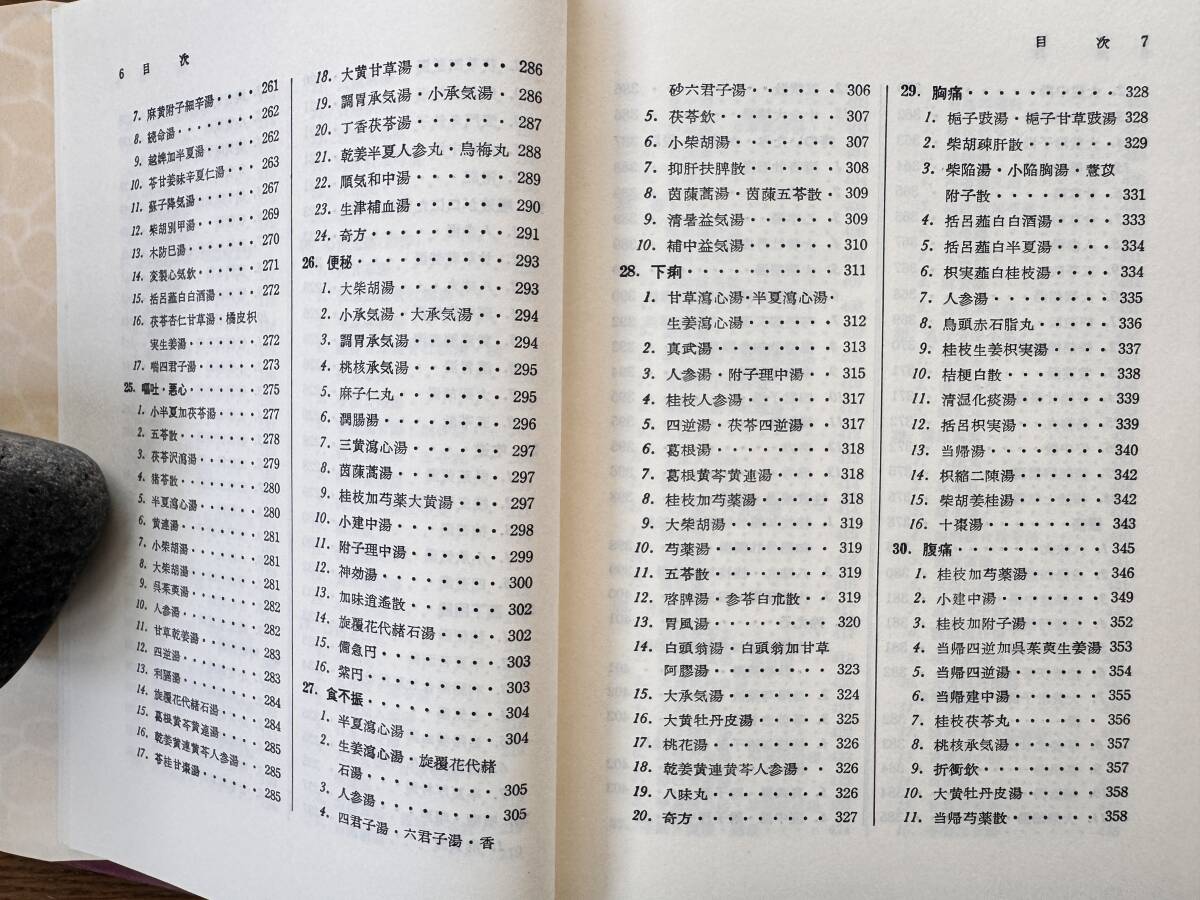 6 目 次
7. 麻黄附子細辛湯・・・・ 261
8. 続命湯・・・・・・・・ 262
9. 越婢加半夏湯・・・・・ 262
10. 苓甘姜味辛夏仁湯・・・ 263
11. 蘇子降気湯・・・・・・ 267
12. 柴胡別甲湯・・・・・・ 269
13. 木防已湯・・・・・・・ 270
14. 変製心気飲・・・・・・ 271
15. 括呂薤白白酒湯・・・・ 272
16. 茯苓杏仁甘草湯・橘皮枳
実生姜湯・・・・・・・ 272
17. 喘四君子湯・・・・・・ 273
25. 嘔吐・悪心・・・・・・・ 275
1. 小半夏加茯苓湯・・・・ 277
2. 五苓散・・・・・・・・ 278
3. 茯苓沢瀉湯・・・・・・ 279
4. 猪苓散・・・・・・・・ 280
5. 半夏瀉心湯・・・・・・ 280
6. 黄連湯・・・・・・・・ 281
7. 小柴胡湯・・・・・・・ 281
8. 大柴胡湯・・・・・・・ 281
9. 呉茱萸湯・・・・・・・ 282
10. 人参湯・・・・・・・・ 282
11. 甘草乾姜湯・・・・・・ 283
12. 四逆湯・・・・・・・・ 283
13. 利膈湯・・・・・・・・ 284
14. 旋覆花代赭石湯・・・・ 284
15. 葛根黄芩黄連湯・・・・ 285
16. 乾姜黄連黄芩人参湯・・ 285
17. 苓桂甘棗湯・・・・・・ 285
18. 大黄甘草湯・・・・・・ 286
19. 調胃承気湯・小承気湯・ 286
20. 丁香茯苓湯・・・・・・ 287
21. 乾姜半夏人参丸・烏梅丸 288
22. 順気和中湯・・・・・・ 289
23. 生津補血湯・・・・・・ 290
24. 奇方・・・・・・・・・ 291
26. 便秘・・・・・・・・・・ 293
1. 大柴胡湯・・・・・・・ 293
2. 小承気湯・大承気湯・・ 294
3. 調胃承気湯・・・・・・ 294
4. 桃核承気湯・・・・・・ 295
5. 麻子仁丸・・・・・・・ 295
6. 潤腸湯・・・・・・・・ 296
7. 三黄瀉心湯・・・・・・ 297
8. 茵蔯蒿湯・・・・・・・ 297
9. 桂枝加芍薬大黄湯・・・ 297
10. 小建中湯・・・・・・・ 298
11. 附子理中湯・・・・・・ 299
12. 神効湯・・・・・・・・ 300
13. 加味逍遙散・・・・・・ 302
14. 旋覆花代赭石湯・・・・ 302
15. 備急円・・・・・・・・ 303
16. 紫円・・・・・・・・・ 303
27. 食不振・・・・・・・・・ 304
1. 半夏瀉心湯・・・・・・ 304
2. 生姜瀉心湯・旋覆花代赭
石湯・・・・・・・・・ 305
3. 人参湯・・・・・・・・ 305
4. 四君子湯・六君子湯・香
目 次 7
砂六君子湯・・・・・・ 306
5. 茯苓飲・・・・・・・・ 307
6. 小柴胡湯・・・・・・・ 307
7. 抑肝扶脾散・・・・・・ 308
8. 茵蔯蒿湯・茵蔯五苓散・ 309
9. 清暑益気湯・・・・・・ 309
10. 補中益気湯・・・・・・ 310
28. 下痢・・・・・・・・・・ 311
1. 甘草瀉心湯・半夏瀉心湯・
生姜瀉心湯・・・・・・ 312
2. 真武湯・・・・・・・・ 313
3. 人参湯・附子理中湯・・ 315
4. 桂枝人参湯・・・・・・ 317
5. 四逆湯・茯苓四逆湯・・ 317
6. 葛根湯・・・・・・・・ 318
7. 葛根黄芩黄連湯・・・・ 318
8. 桂枝加芍薬湯・・・・・ 318
9. 大柴胡湯・・・・・・・ 319
10. 芍薬湯・・・・・・・・ 319
11. 五苓散・・・・・・・・ 319
12. 啓脾湯・参苓白朮散・・ 319
13. 胃風湯・・・・・・・・ 320
14. 白頭翁湯・白頭翁加甘草
阿膠湯・・・・・・・・ 323
15. 大承気湯・・・・・・・ 324
16. 大黄牡丹皮湯・・・・・ 325
17. 桃花湯・・・・・・・・ 326
18. 乾姜黄連黄芩人参湯・・ 326
19. 八味丸・・・・・・・・ 326
20. 奇方・・・・・・・・・ 327
29. 胸痛・・・・・・・・・・ 328
1. 梔子豉湯・梔子甘草豉湯 328
2. 柴胡疎肝散・・・・・・ 329
3. 柴陥湯・小陥胸湯・薏苡
附子散・・・・・・・・ 331
4. 括呂薤白白酒湯・・・・ 333
5. 括呂薤白半夏湯・・・・ 334
6. 枳実薤白桂枝湯・・・・ 334
7. 人参湯・・・・・・・・ 335
8. 烏頭赤石脂丸・・・・・ 336
9. 桂枝生姜枳実湯・・・・ 337
10. 桔梗白散・・・・・・・ 338
11. 清湿化痰湯・・・・・・ 339
12. 括呂枳実湯・・・・・・ 339
13. 当帰湯・・・・・・・・ 340
14. 枳縮二陳湯・・・・・・ 342
15. 柴胡姜桂湯・・・・・・ 342
16. 十棗湯・・・・・・・・ 343
30. 腹痛・・・・・・・・・・ 345
1. 桂枝加芍薬湯・・・・・ 346
2. 小建中湯・・・・・・・ 349
3. 桂枝加附子湯・・・・・ 352
4. 当帰四逆加呉茱萸生姜湯 353
5. 当帰四逆湯・・・・・・ 354
6. 当帰建中湯・・・・・・ 355
7. 桂枝茯苓丸・・・・・・ 356
8. 桃核承気湯・・・・・・ 357
9. 折衝飲・・・・・・・・ 357
10. 大黄牡丹皮湯・・・・・ 358
11. 当帰芍薬散・・・・・・ 358